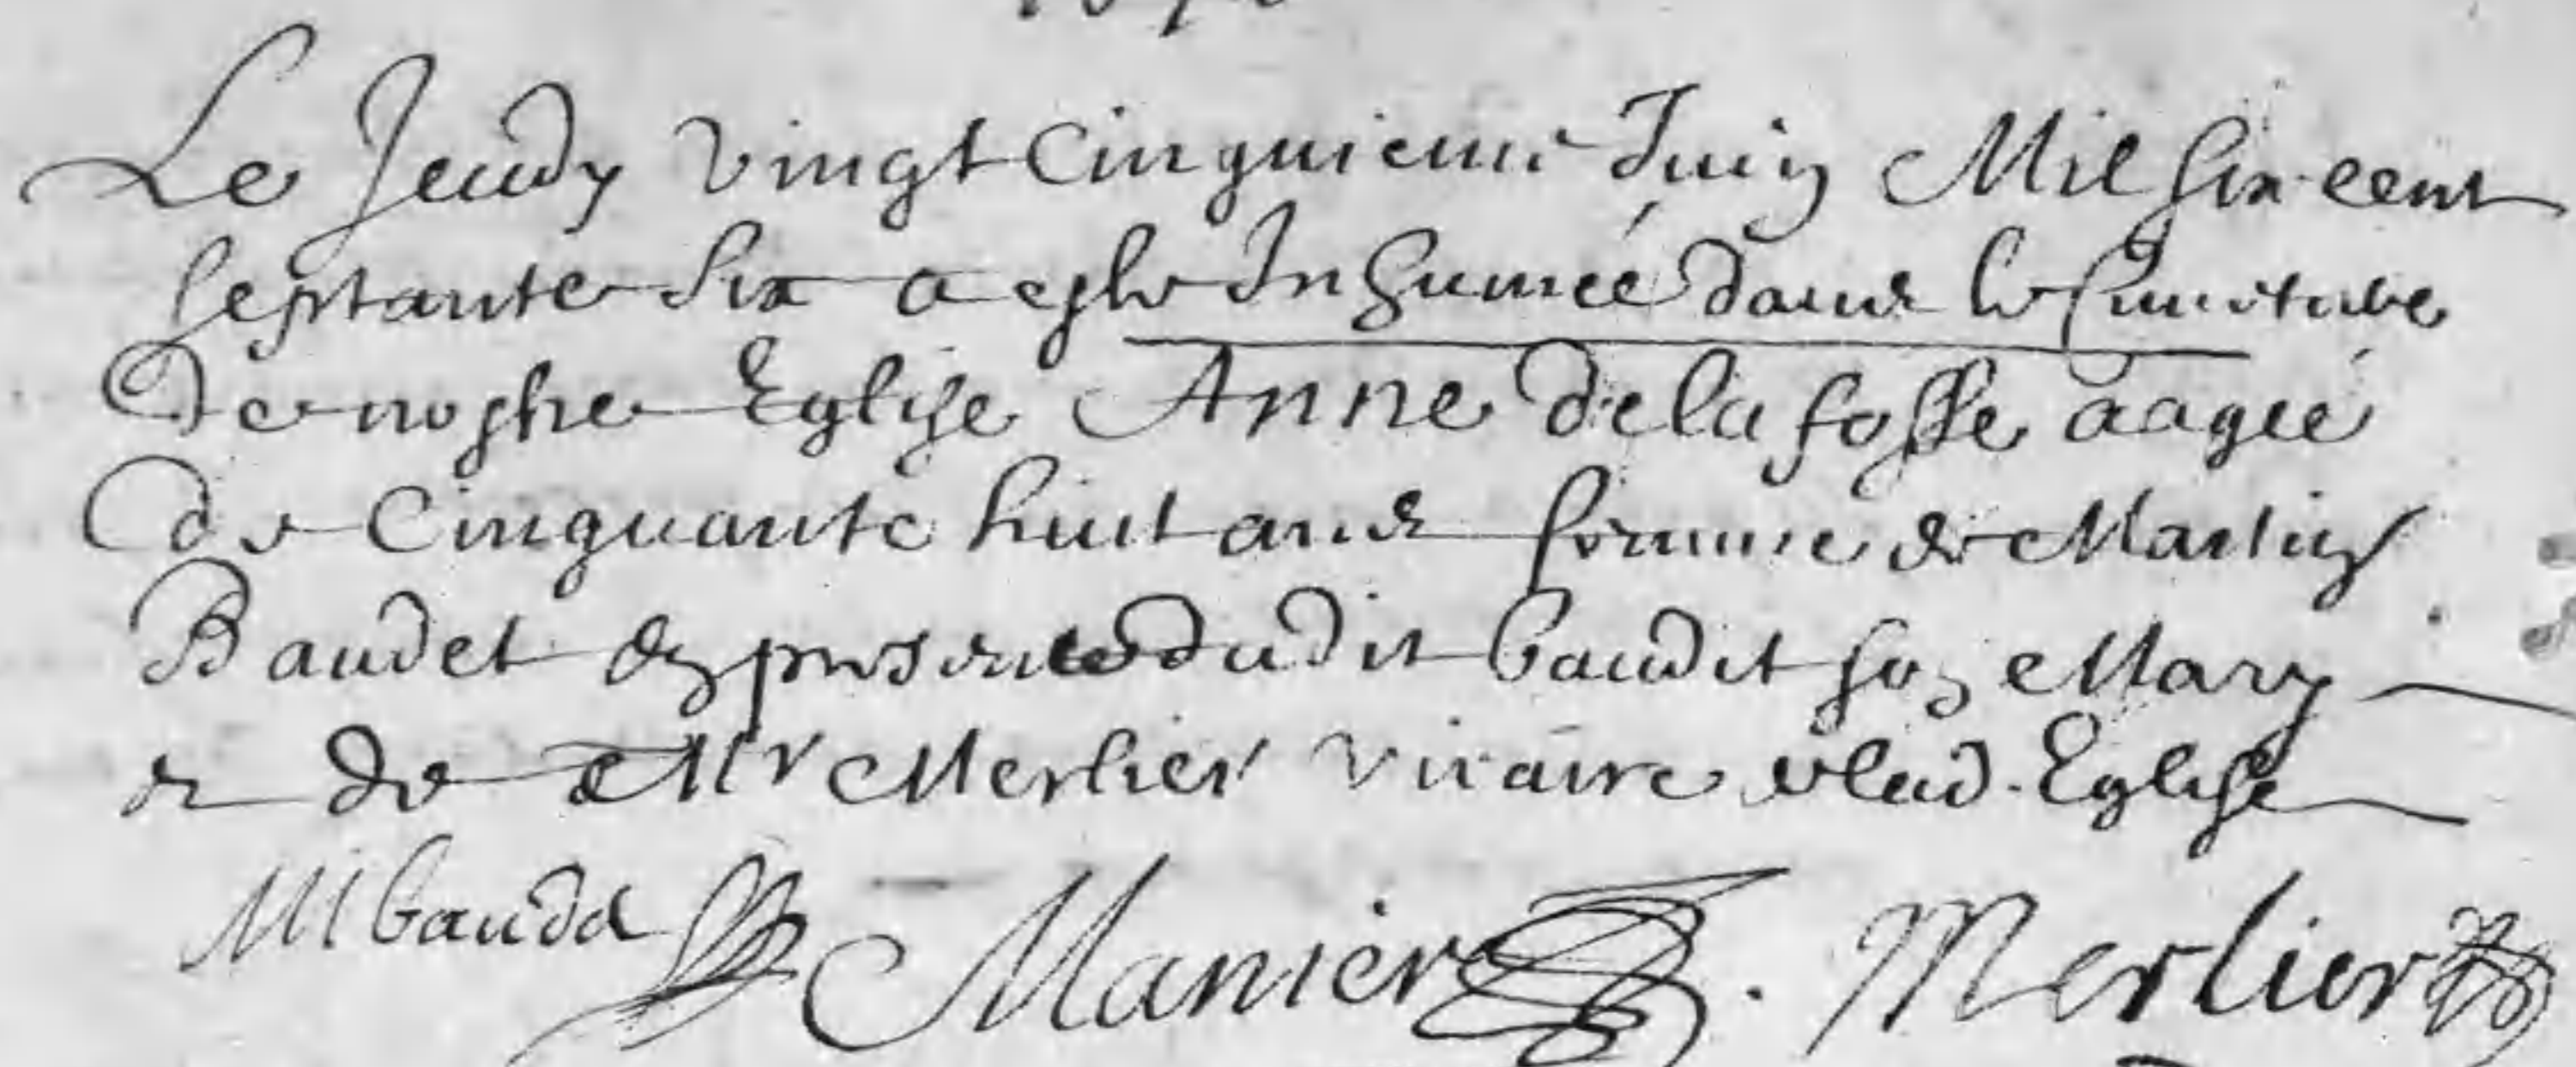 Le Jeudy vingt cinquieme Juin Mil six cent
septante six a este Inhumée dans le Cimitiere
de nostre Eglise Anne de la fosse aagée
de cinquante huit ans femme de Martin
Baudet en presence dudit baudet son Mary
et de Mr Merlier vicaire de lad. Eglise
M baudet Manier Merlier